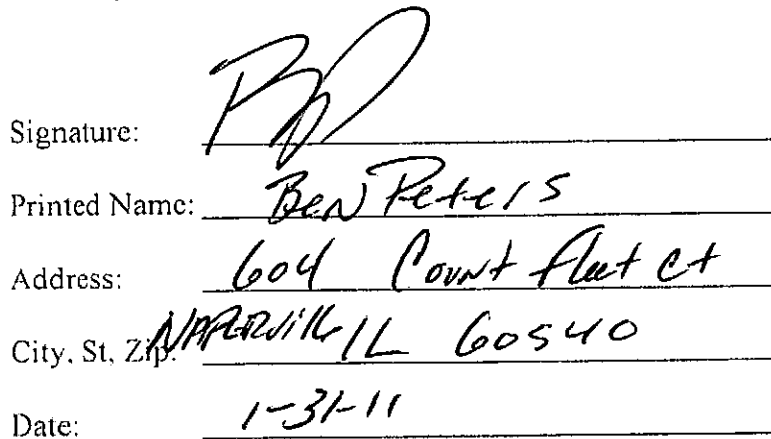 Signature:
Printed Name: Ben Peters
Address: 604 Count fleet ct
City, St, Zip: NAPERVille IL 60540
Date: 1-31-11